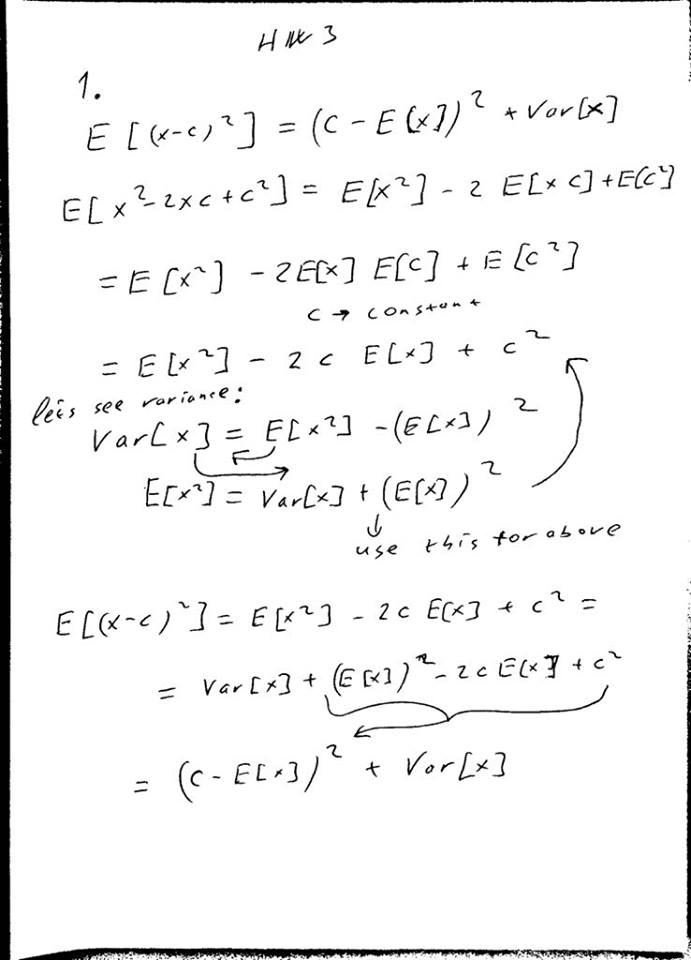 HW 3
1.
E[(x-c)²] = (c - E[x])² + Var[x]
E[x² - 2xc + c²] = E[x²] - 2 E[xc] + E[c²]
= E[x²] - 2E[x] E[c] + E[c²]
c → constant
= E[x²] - 2c E[x] + c²
let's see variance:
Var[x] = E[x²] - (E[x])²
E[x²] = Var[x] + (E[x])²
use this for above
E[(x-c)²] = E[x²] - 2c E[x] + c² =
= Var[x] + (E[x])² - 2c E[x] + c²
= (c - E[x])² + Var[x]